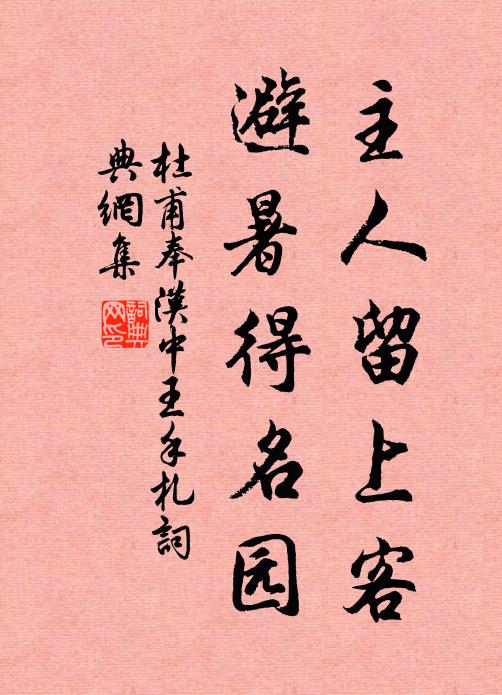 主人留上客
避暑得名园
杜甫奉漢中王手札詞
典網集
詞典
网印